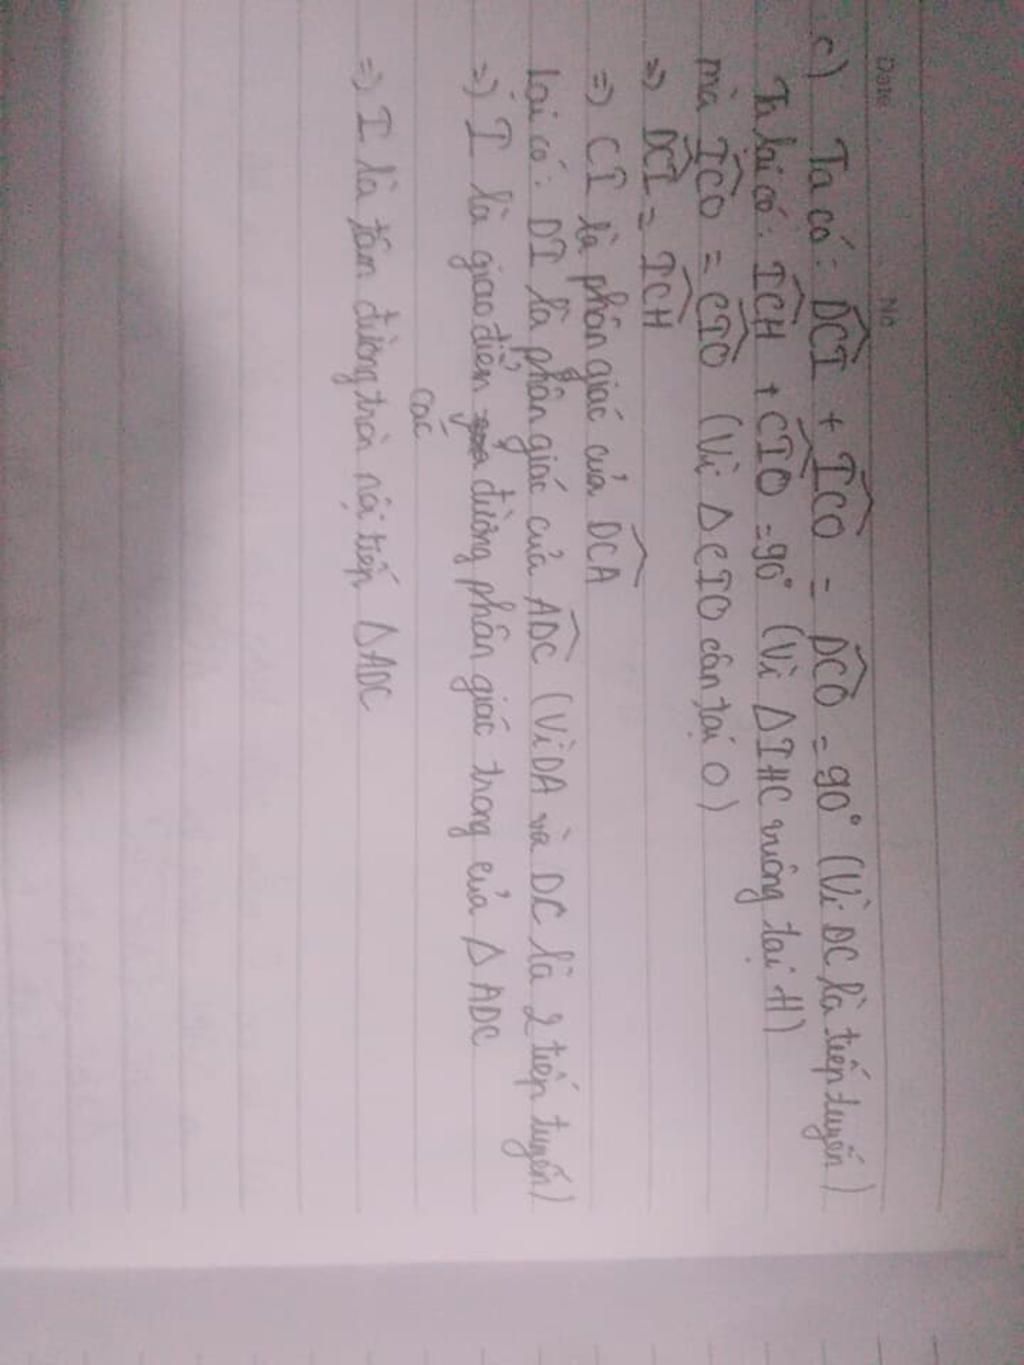 Date No
c) Ta có: DCI + ICO = DCO = 90° (Vì DC là tiếp tuyến)
Ta lại có: ICH + CIO = 90° (Vì ΔIHC vuông tại H)
mà ICO = CIO (Vì ΔCIO cân tại O)
=> DCI = ICH
=> CI là phân giác của DCA
Lại có: DI là phân giác của ADC (Vì DA và DC là 2 tiếp tuyến)
=> I là giao điểm các đường phân giác trong của Δ ADC
=> I là tâm đường tròn nội tiếp ΔADC